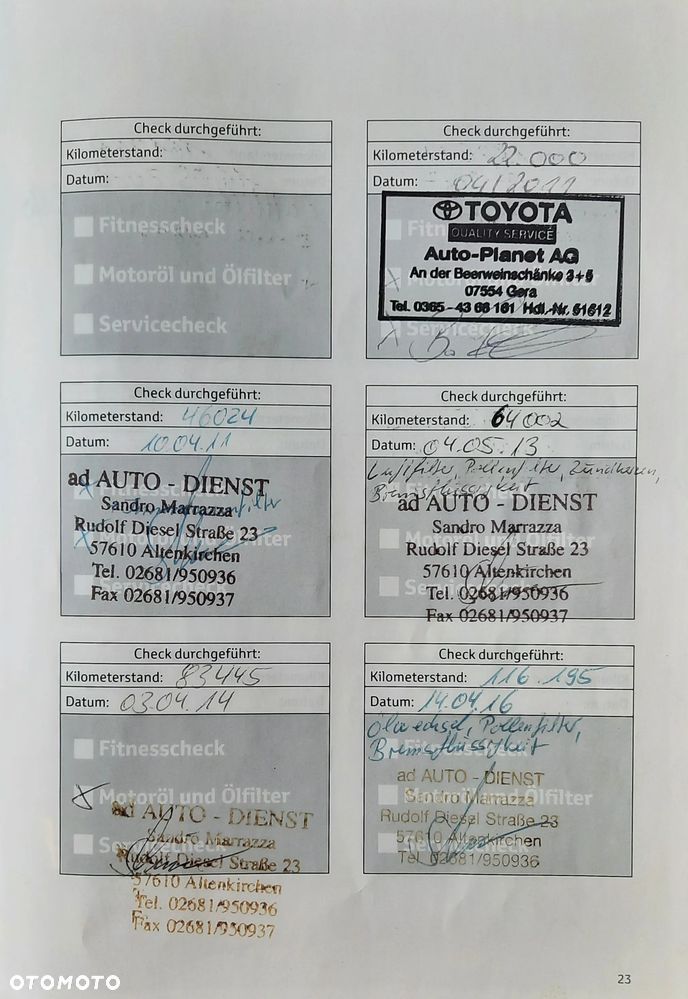 Check durchgeführt:
Kilometerstand:
Datum:
Fitnesscheck
Motoröl und Ölfilter
Servicecheck
Check durchgeführt:
Kilometerstand: 22.000
Datum: 04/2011
TOYOTA
QUALITY SERVICE
Auto-Planet AG
An der Beerweinschänke 3+5
07554 Gera
Tel. 0365 - 43 68 161 Hdl.-Nr. 51612
Servicecheck
Check durchgeführt:
Kilometerstand: 46024
Datum: 10.04.11
ad AUTO - DIENST
Sandro Marrazza
Rudolf Diesel Straße 23
57610 Altenkirchen
Tel. 02681/950936
Fax 02681/950937
Check durchgeführt:
Kilometerstand: 64002
Datum: 04.05.13
Luftfilter, Pollenfilter, Zündkerzen,
Bremsflüssigkeit
ad AUTO - DIENST
Sandro Marrazza
Rudolf Diesel Straße 23
57610 Altenkirchen
Tel. 02681/950936
Fax 02681/950937
Check durchgeführt:
Kilometerstand: 83445
Datum: 03.04.14
Fitnesscheck
Motoröl und Ölfilter
ad AUTO - DIENST
Sandro Marrazza
Rudolf Diesel Straße 23
57610 Altenkirchen
Tel. 02681/950936
Fax 02681/950937
Check durchgeführt:
Kilometerstand: 116.195
Datum: 14.04.16
Ölwechsel, Pollenfilter,
Bremsflüssigkeit
ad AUTO - DIENST
Sandro Marrazza
Rudolf Diesel Straße 23
57610 Altenkirchen
Tel. 02681/950936
23
OTOMOTO